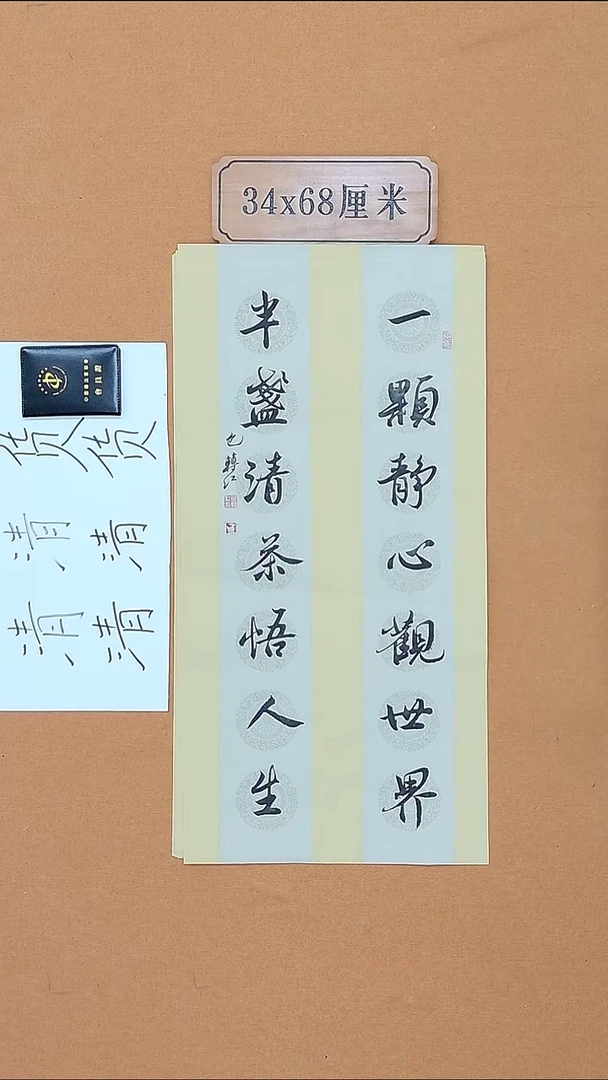 34x68厘米
一顆静心觀世界
半盏清茶悟人生
清 清
清 清